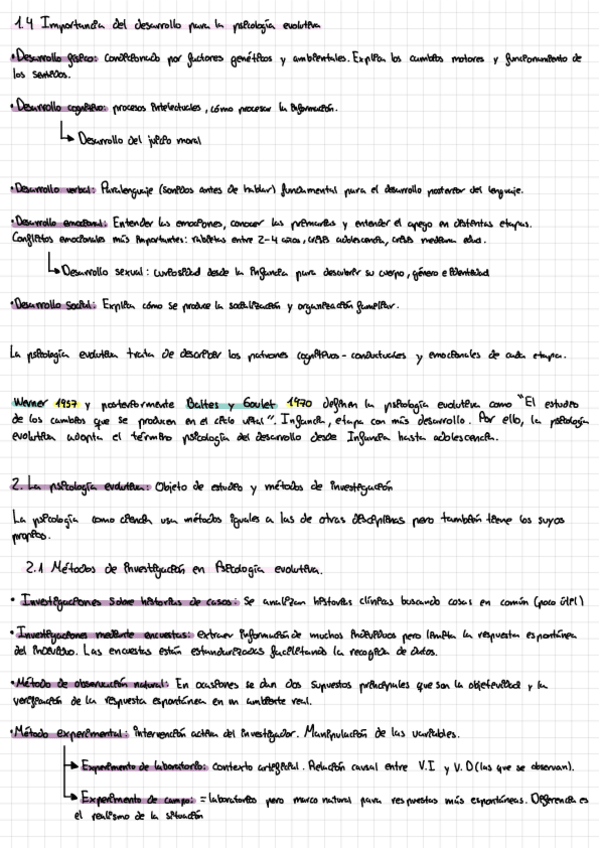 1.4 Importancia del desarrollo para la psicología evolutiva
• Desarrollo físico: condicionado por factores genéticos y ambientales. Explica los cambios motores y funcionamiento de
los sentidos.
• Desarrollo cognitivo: procesos intelectuales, cómo procesar la información.
Desarrollo del juicio moral
• Desarrollo verbal: Paralenguaje (sonidos antes de hablar) fundamental para el desarrollo posterior del lenguaje.
• Desarrollo emocional: Entender las emociones, conocer las primarias y entender el apego en distintas etapas.
Conflictos emocionales más importantes: rabietas entre 2-4 años, crisis adolescencia, crisis mediana edad.
Desarrollo sexual: curiosidad desde la infancia para descubrir su cuerpo, género e identidad
• Desarrollo Social: Explica cómo se produce la socialización y organización familiar.
La psicología evolutiva trata de describir los patrones cognitivos-conductuales y emocionales de cada etapa.
Werner 1957 y posteriormente Baltes y Goulet 1970 definen la psicología evolutiva como "El estudio
de los cambios que se producen en el ciclo vital". Infancia, etapa con más desarrollo. Por ello, la psicología
evolutiva adopta el término psicología del desarrollo desde Infancia hasta adolescencia.
2. La psicología evolutiva: Objeto de estudio y métodos de investigación
La psicología como ciencia usa métodos iguales a las de otras disciplinas pero también tiene los suyos
propios.
2.1 Métodos de investigación en Psicología evolutiva.
• Investigaciones sobre historias de casos: Se analizan historias clínicas buscando cosas en común (poco útil)
• Investigaciones mediante encuestas: extraer información de muchos individuos pero limita la respuesta espontánea
del individuo. Las encuestas están estandarizadas facilitando la recogida de datos.
• Método de observación natural: En ocasiones se dan dos supuestos principales que son la objetividad y la
verificación de la respuesta espontánea en un ambiente real.
• Método experimental: intervención activa del investigador. Manipulación de las variables.
Experimento de laboratorio: contexto artificial. Relación causal entre V.I y V.D (las que se observan).
Experimento de campo: = laboratorio pero marco natural para respuestas más espontáneas. Diferencia es
el realismo de la situación